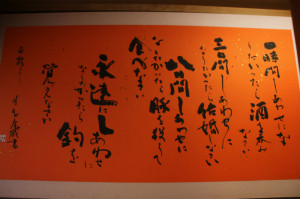 一時間しあわせになり
たかったら酒を飲み
なさい
三日間しあわせに
なりたかったら結婚しなさい
八日間しあわせに
なりたかったら豚を殺して
食べなさい
永遠にしあわせに
なりたかったら釣を
覚えなさい